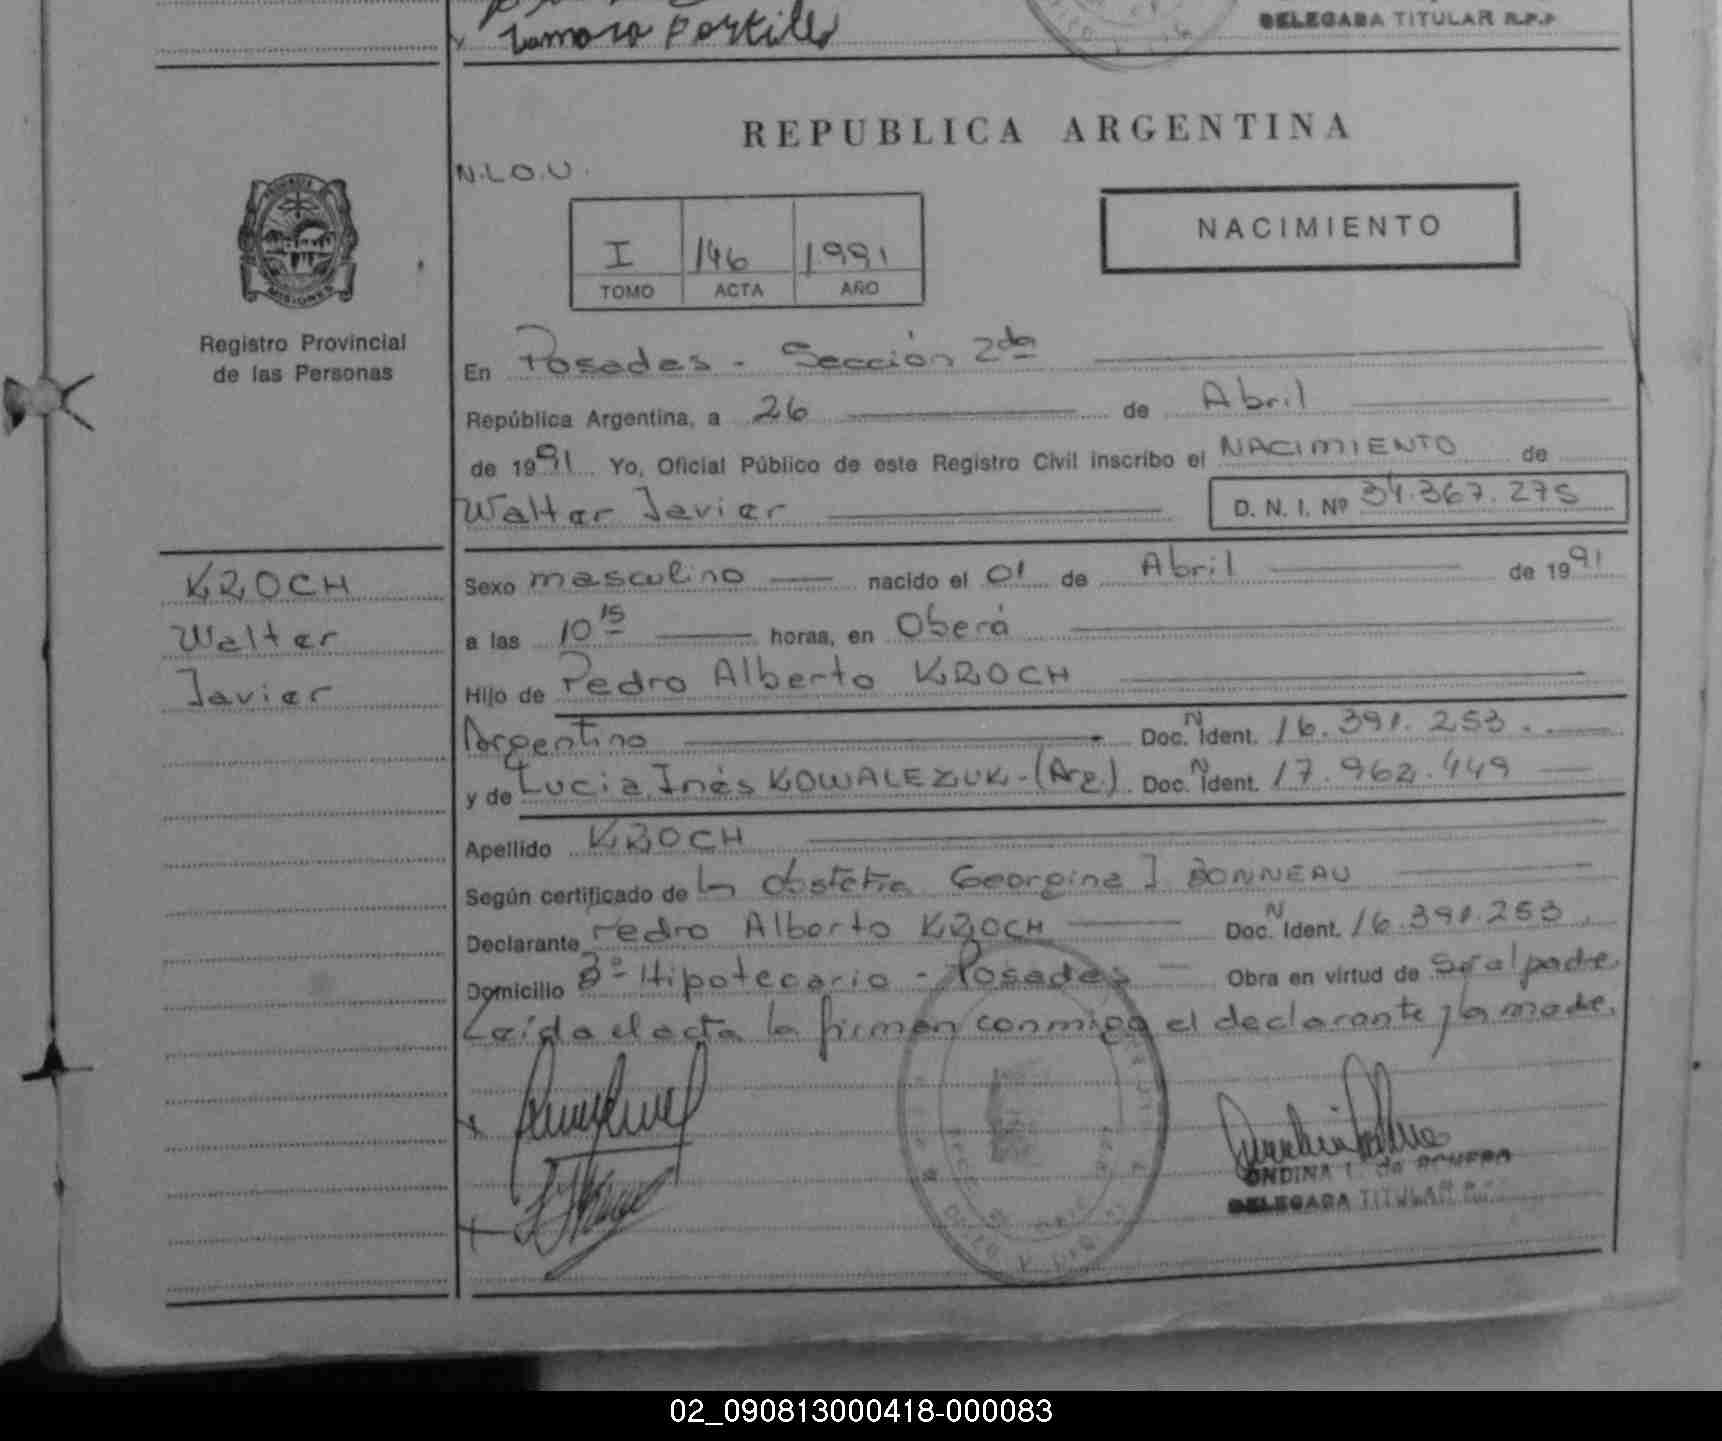 Zamora Portillo
DELEGADA TITULAR R.P.P
REPUBLICA ARGENTINA
N.L.O.U.
NACIMIENTO
I 146 1991
TOMO ACTA AÑO
MISIONES
Registro Provincial
de las Personas
En Posadas - Sección 2da
República Argentina, a 26 de Abril
de 1991 Yo, Oficial Público de este Registro Civil inscribo el NACIMIENTO de
Walter Javier D. N. I. Nº 34.367.275
KROCH
Walter
Javier
Sexo masculino nacido el 01 de Abril de 1991
a las 10 15 horas, en Oberá
Hijo de Pedro Alberto KROCH
Argentino Doc. N Ident. 16.391.253.
y de Lucia Inés KOWALEZUK - (Arg.) Doc. N Ident. 17.962.449
Apellido KROCH
Según certificado de la Obstetra Georgina I BONNEAU
Declarante Pedro Alberto KROCH Doc. N Ident. 16.391.253.
Domicilio Bº Hipotecario - Posadas Obra en virtud de ser el padre
Leída el acta la firman conmigo el declarante y la madre.
ONDINA
DELEGADA TITULAR
02_090813000418-000083